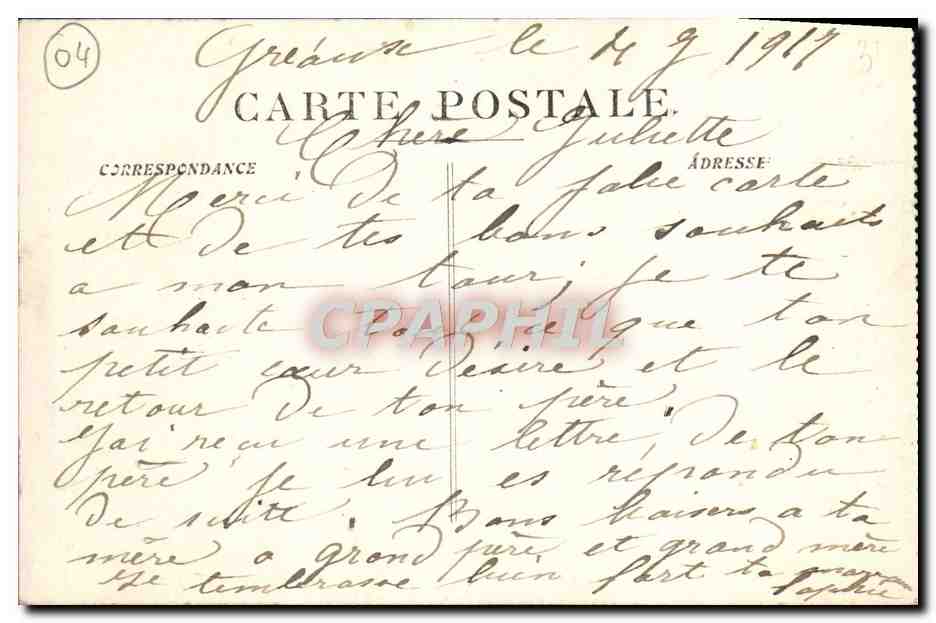 04
Gréoux le 4 9 1917
31
CARTE POSTALE.
Chere Juliette
CORRESPONDANCE
ADRESSE
Merci De ta jolie carte
et de tes bons souhaits
a mon tour, je te
souhaite tout ce que ton
petit cœur Désire et le
retour De ton père.
J'ai reçu une lettre, De ton
père je lui es répondu
De suitte. Bons baisers a ta
mère a grand père et grand mère
Je tembrasse bien fort ta marraine
Sophie
CPAPHIL